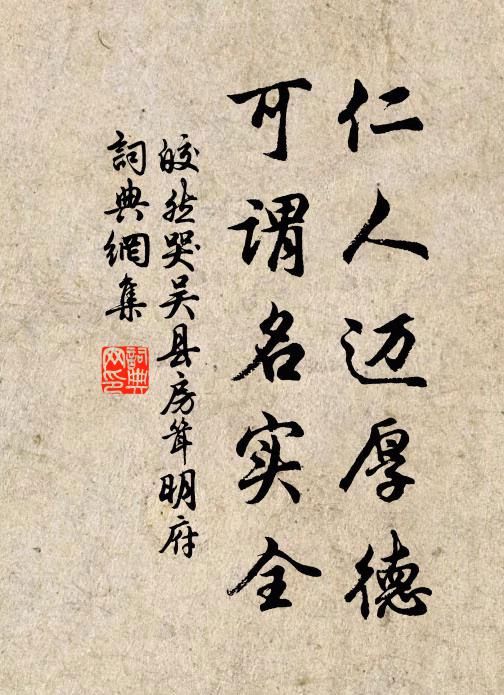 仁人迈厚德
可谓名实全
皎然哭吴县房耸明府
词典網集
詞典网印